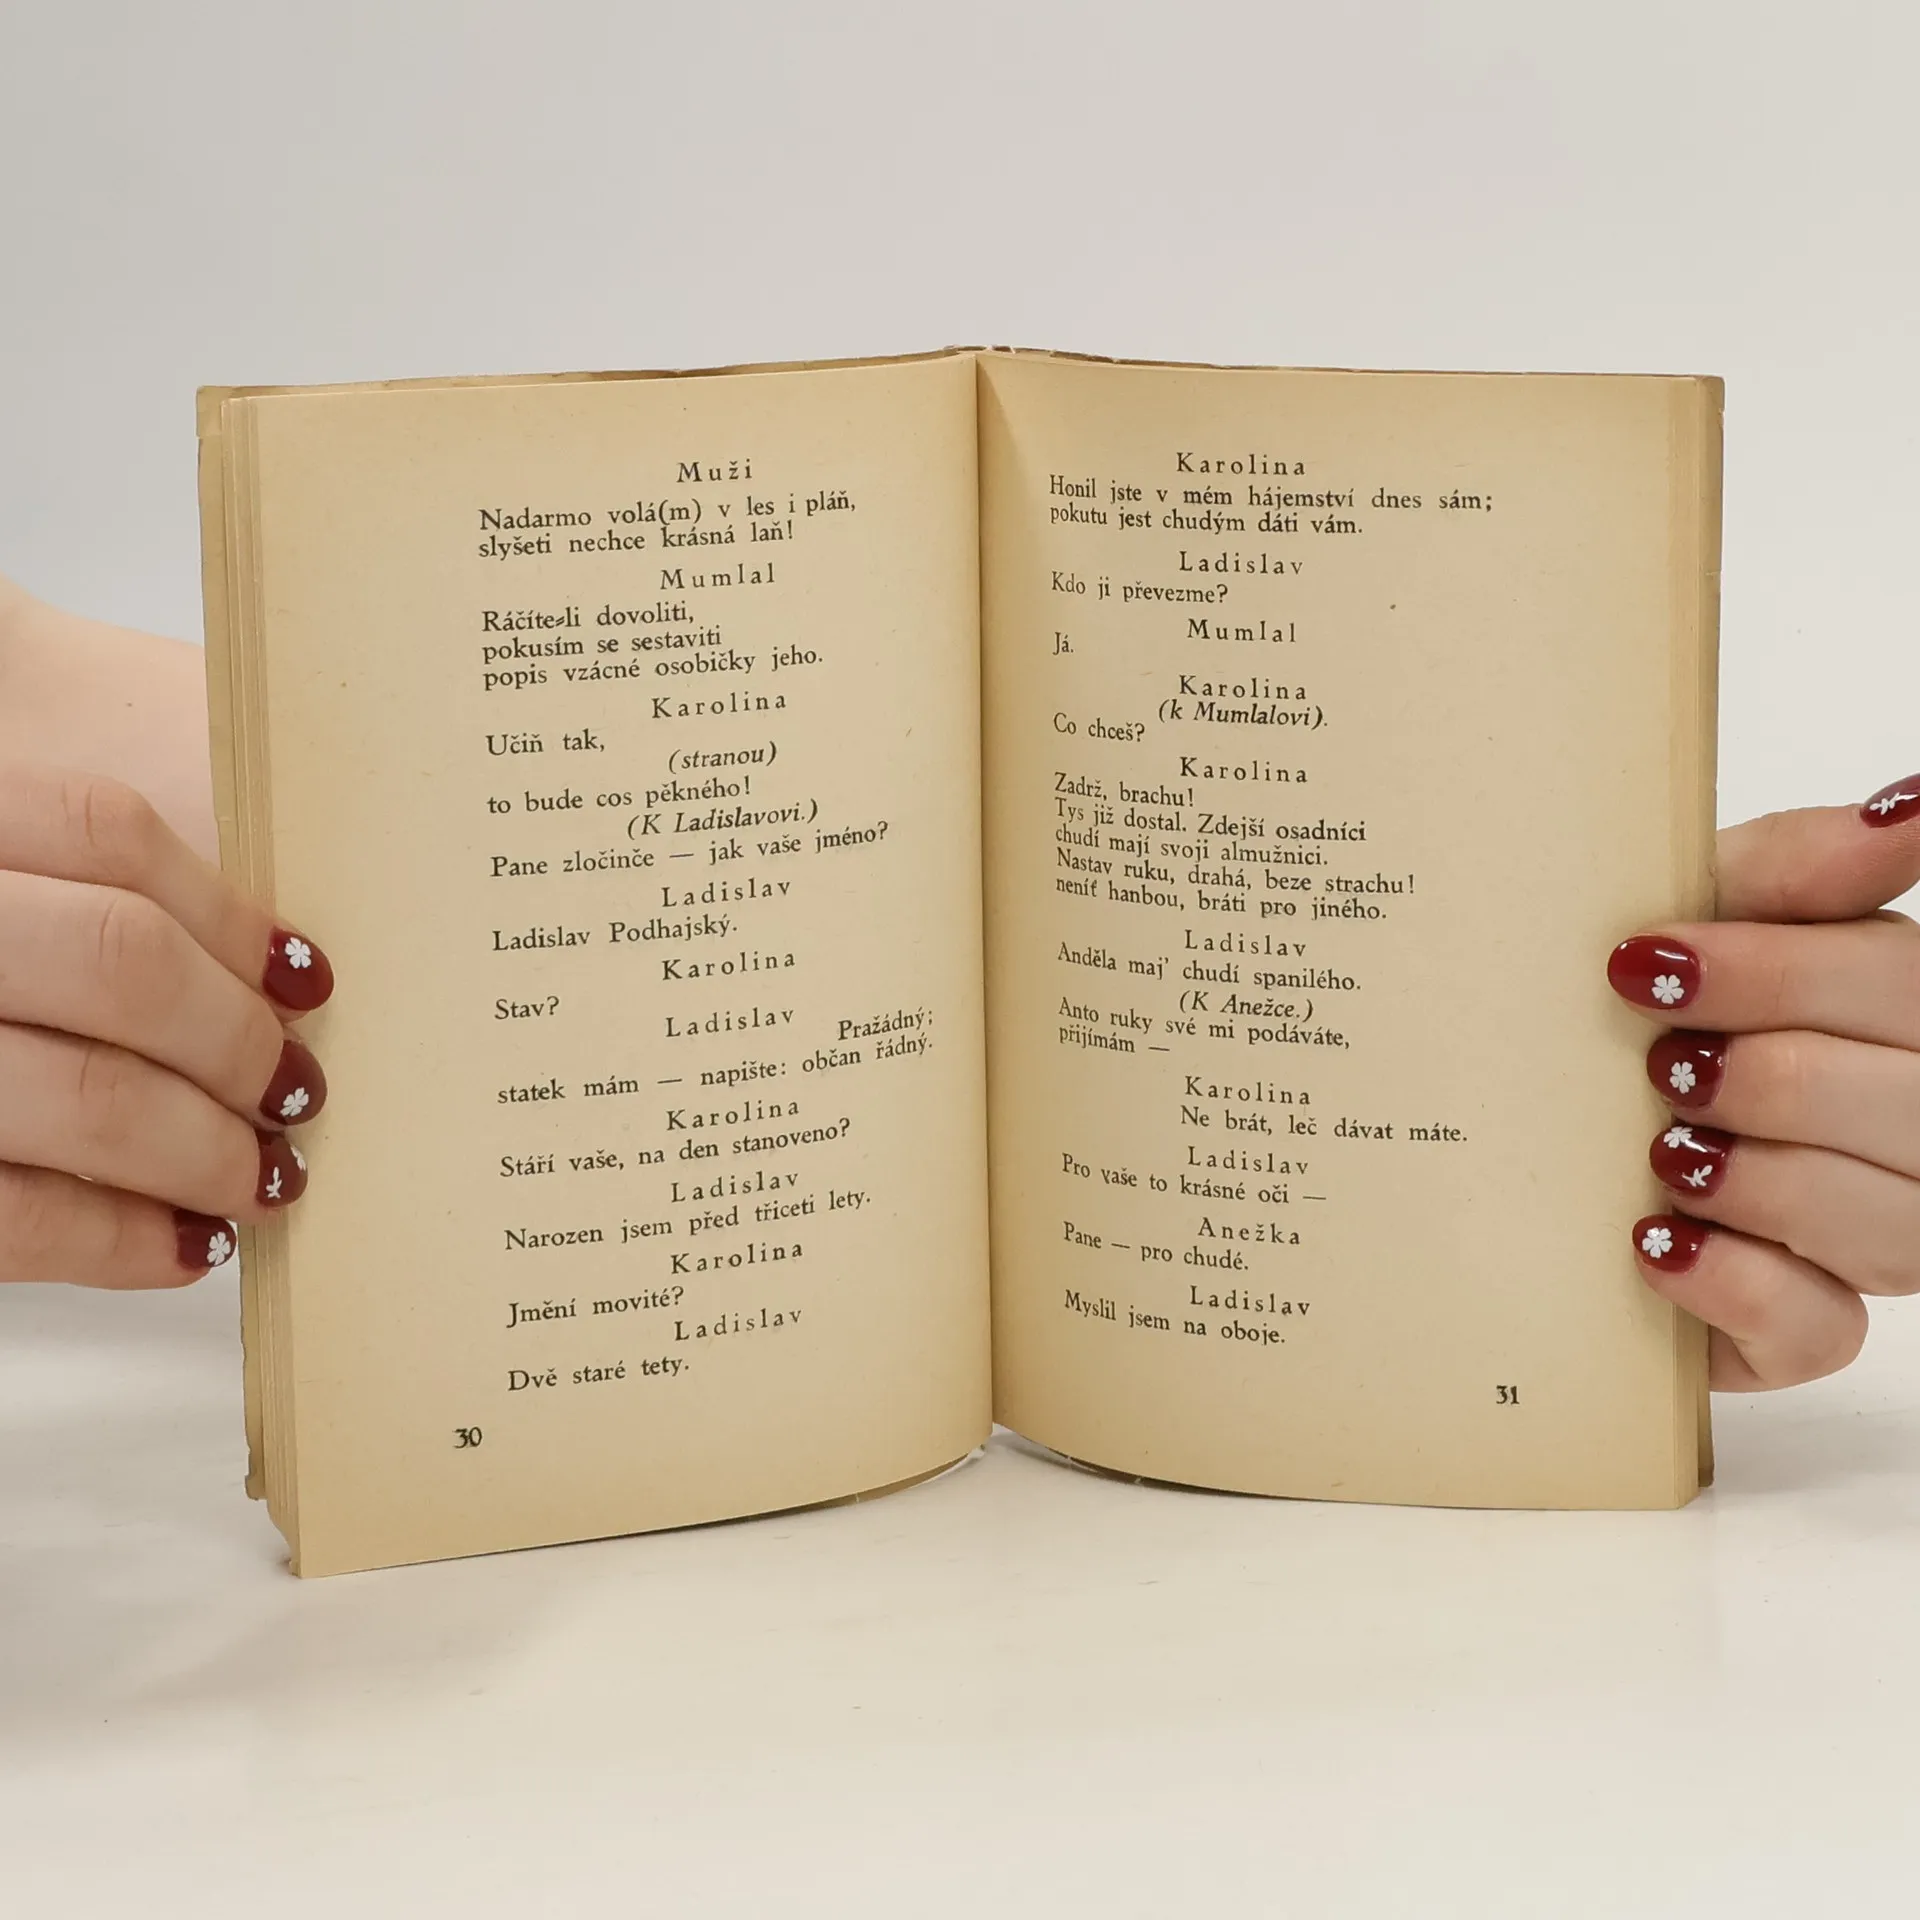 Muži
Nadarmo volá(m) v les i pláň,
slyšeti nechce krásná laň!
Mumlal
Ráčíte-li dovoliti,
pokusím se sestaviti
popis vzácné osobičky jeho.
Karolina
Učiň tak,
(stranou)
to bude cos pěkného!
(K Ladislavovi.)
Pane zločinče — jak vaše jméno?
Ladislav
Ladislav Podhajský.
Karolina
Stav?
Ladislav
Pražádný;
statek mám — napište: občan řádný.
Karolina
Stáří vaše, na den stanoveno?
Ladislav
Narozen jsem před třiceti lety.
Karolina
Jmění movité?
Ladislav
Dvě staré tety.
30
Karolina
Honil jste v mém hájemství dnes sám;
pokutu jest chudým dáti vám.
Ladislav
Kdo ji převezme?
Mumlal
Já.
Karolina
(k Mumlalovi).
Co chceš?
Karolina
Zadrž, brachu!
Tys již dostal. Zdejší osadníci
chudí mají svoji almužnici.
Nastav ruku, drahá, beze strachu!
neníť hanbou, bráti pro jiného.
Ladislav
Anděla maj' chudí spanilého.
(K Anežce.)
Anto ruky své mi podáváte,
přijímám —
Karolina
Ne brát, leč dávat máte.
Ladislav
Pro vaše to krásné oči —
Anežka
Pane — pro chudé.
Ladislav
Myslil jsem na oboje.
31